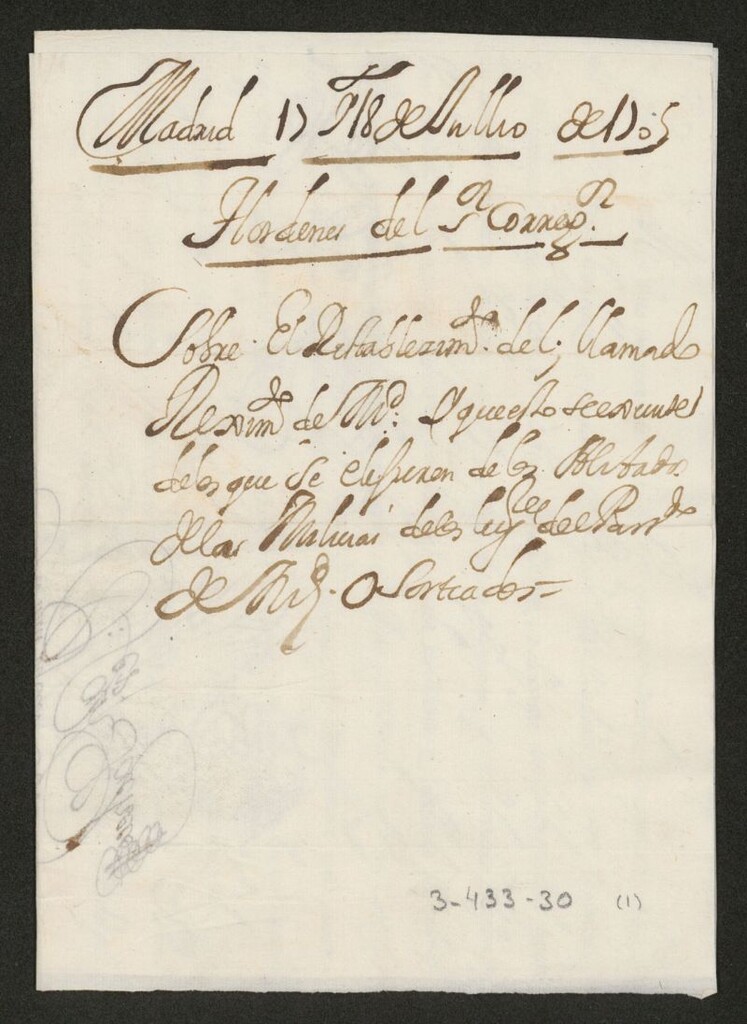 Madrid 17 Y 18 de Jullio de 1705
Hordenes del Sr. Corregr.
Sobre El Restablezimto. del llamado
Reximto de Md. y que esto se execute
de los que se elisieren de los Alistados
de las Milicias de los lugres del Partdo
de Md. O Sorteados=
3-433-30 (1)